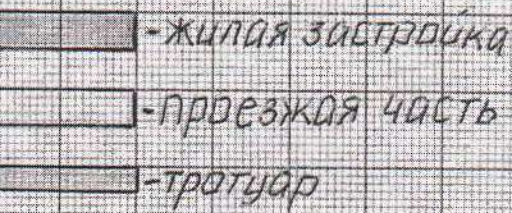 -жилая застройка
-проезжая часть
-тротуар